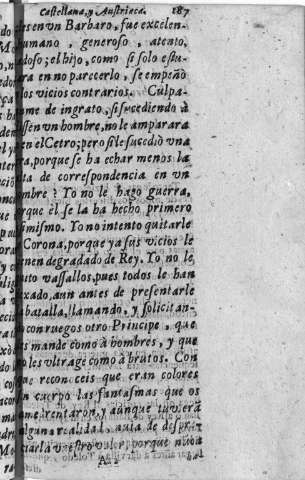 Castellana, y Austriaca. 187
es en vn Barbaro, fue excelen-
umano, generoso, atento,
adoso; el hijo, como si solo estu-
ara en no parecerlo, se empeñò
los vicios contrarios. Culpa-
me de ingrato, si sucediendo à
en vn hombre, no le amparara
en el Cetro; pero si le sucediò vna
ra, porque se ha echar menos la
ta de correspondencia en vn
mbre? Yo no le hago guerra,
rque èl se la ha hecho primero
simismo. Yo no intento quitarle
Corona, porque ya sus vicios le
enen degradado de Rey. Yo no le
uto vassallos, pues todos le han
xado, aun antes de presentarle
batalla, llamando, y solicitan-
con ruegos otro Principe, que
s mande como à hombres, y que
o les vltrage como à brutos. Con
que reconoceis que eran colores
n cuerpo las fantasmas que os
amedrentaron, y aunque tuviera
alguna realidad, auia de
vuestro valor, porque nu